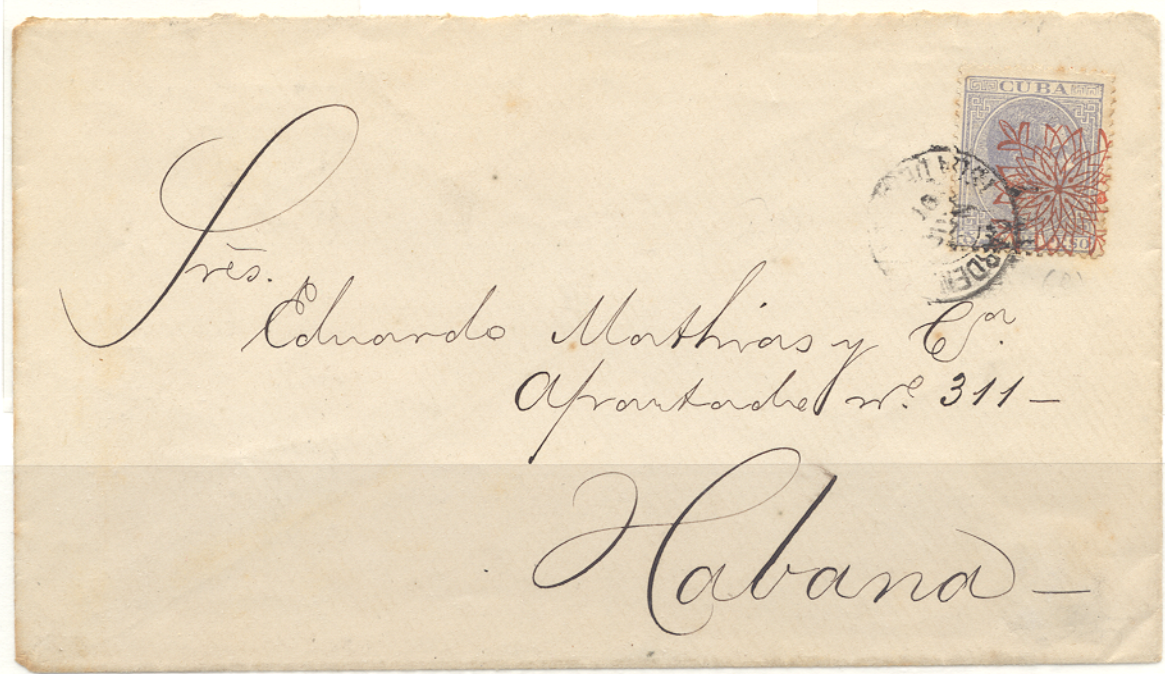 CUBA
Srēs.
Eduardo Mathias y Cª.
Apartado nº. 311 –
Habana –